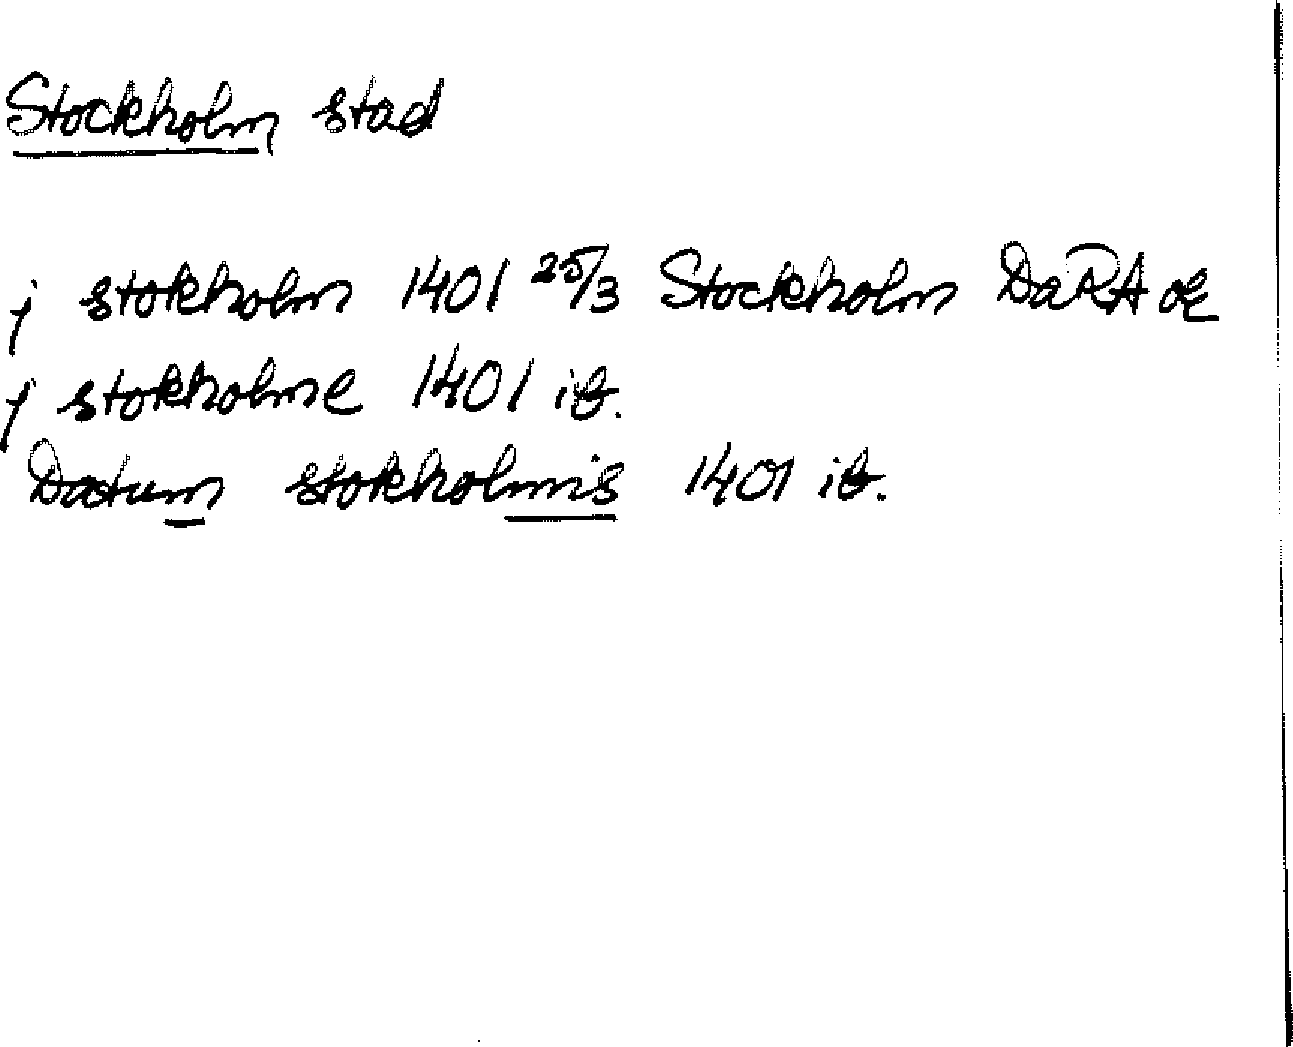 Stockholm stad
j stokholm 1401 25/3 Stockholm DaRA or
j stokholme 1401 ib.
Datum stokholmis 1401 ib.